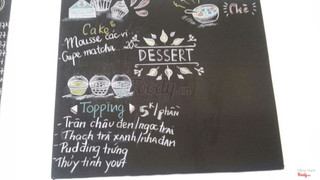 Cake
Chè
Mousse các vị
Cupe matcha
DESSERT
Topping 5k/phần
- Trân châu đen/ngọc trai
- Thạch trà xanh/nha đam
- Pudding trứng
- Thủy tinh